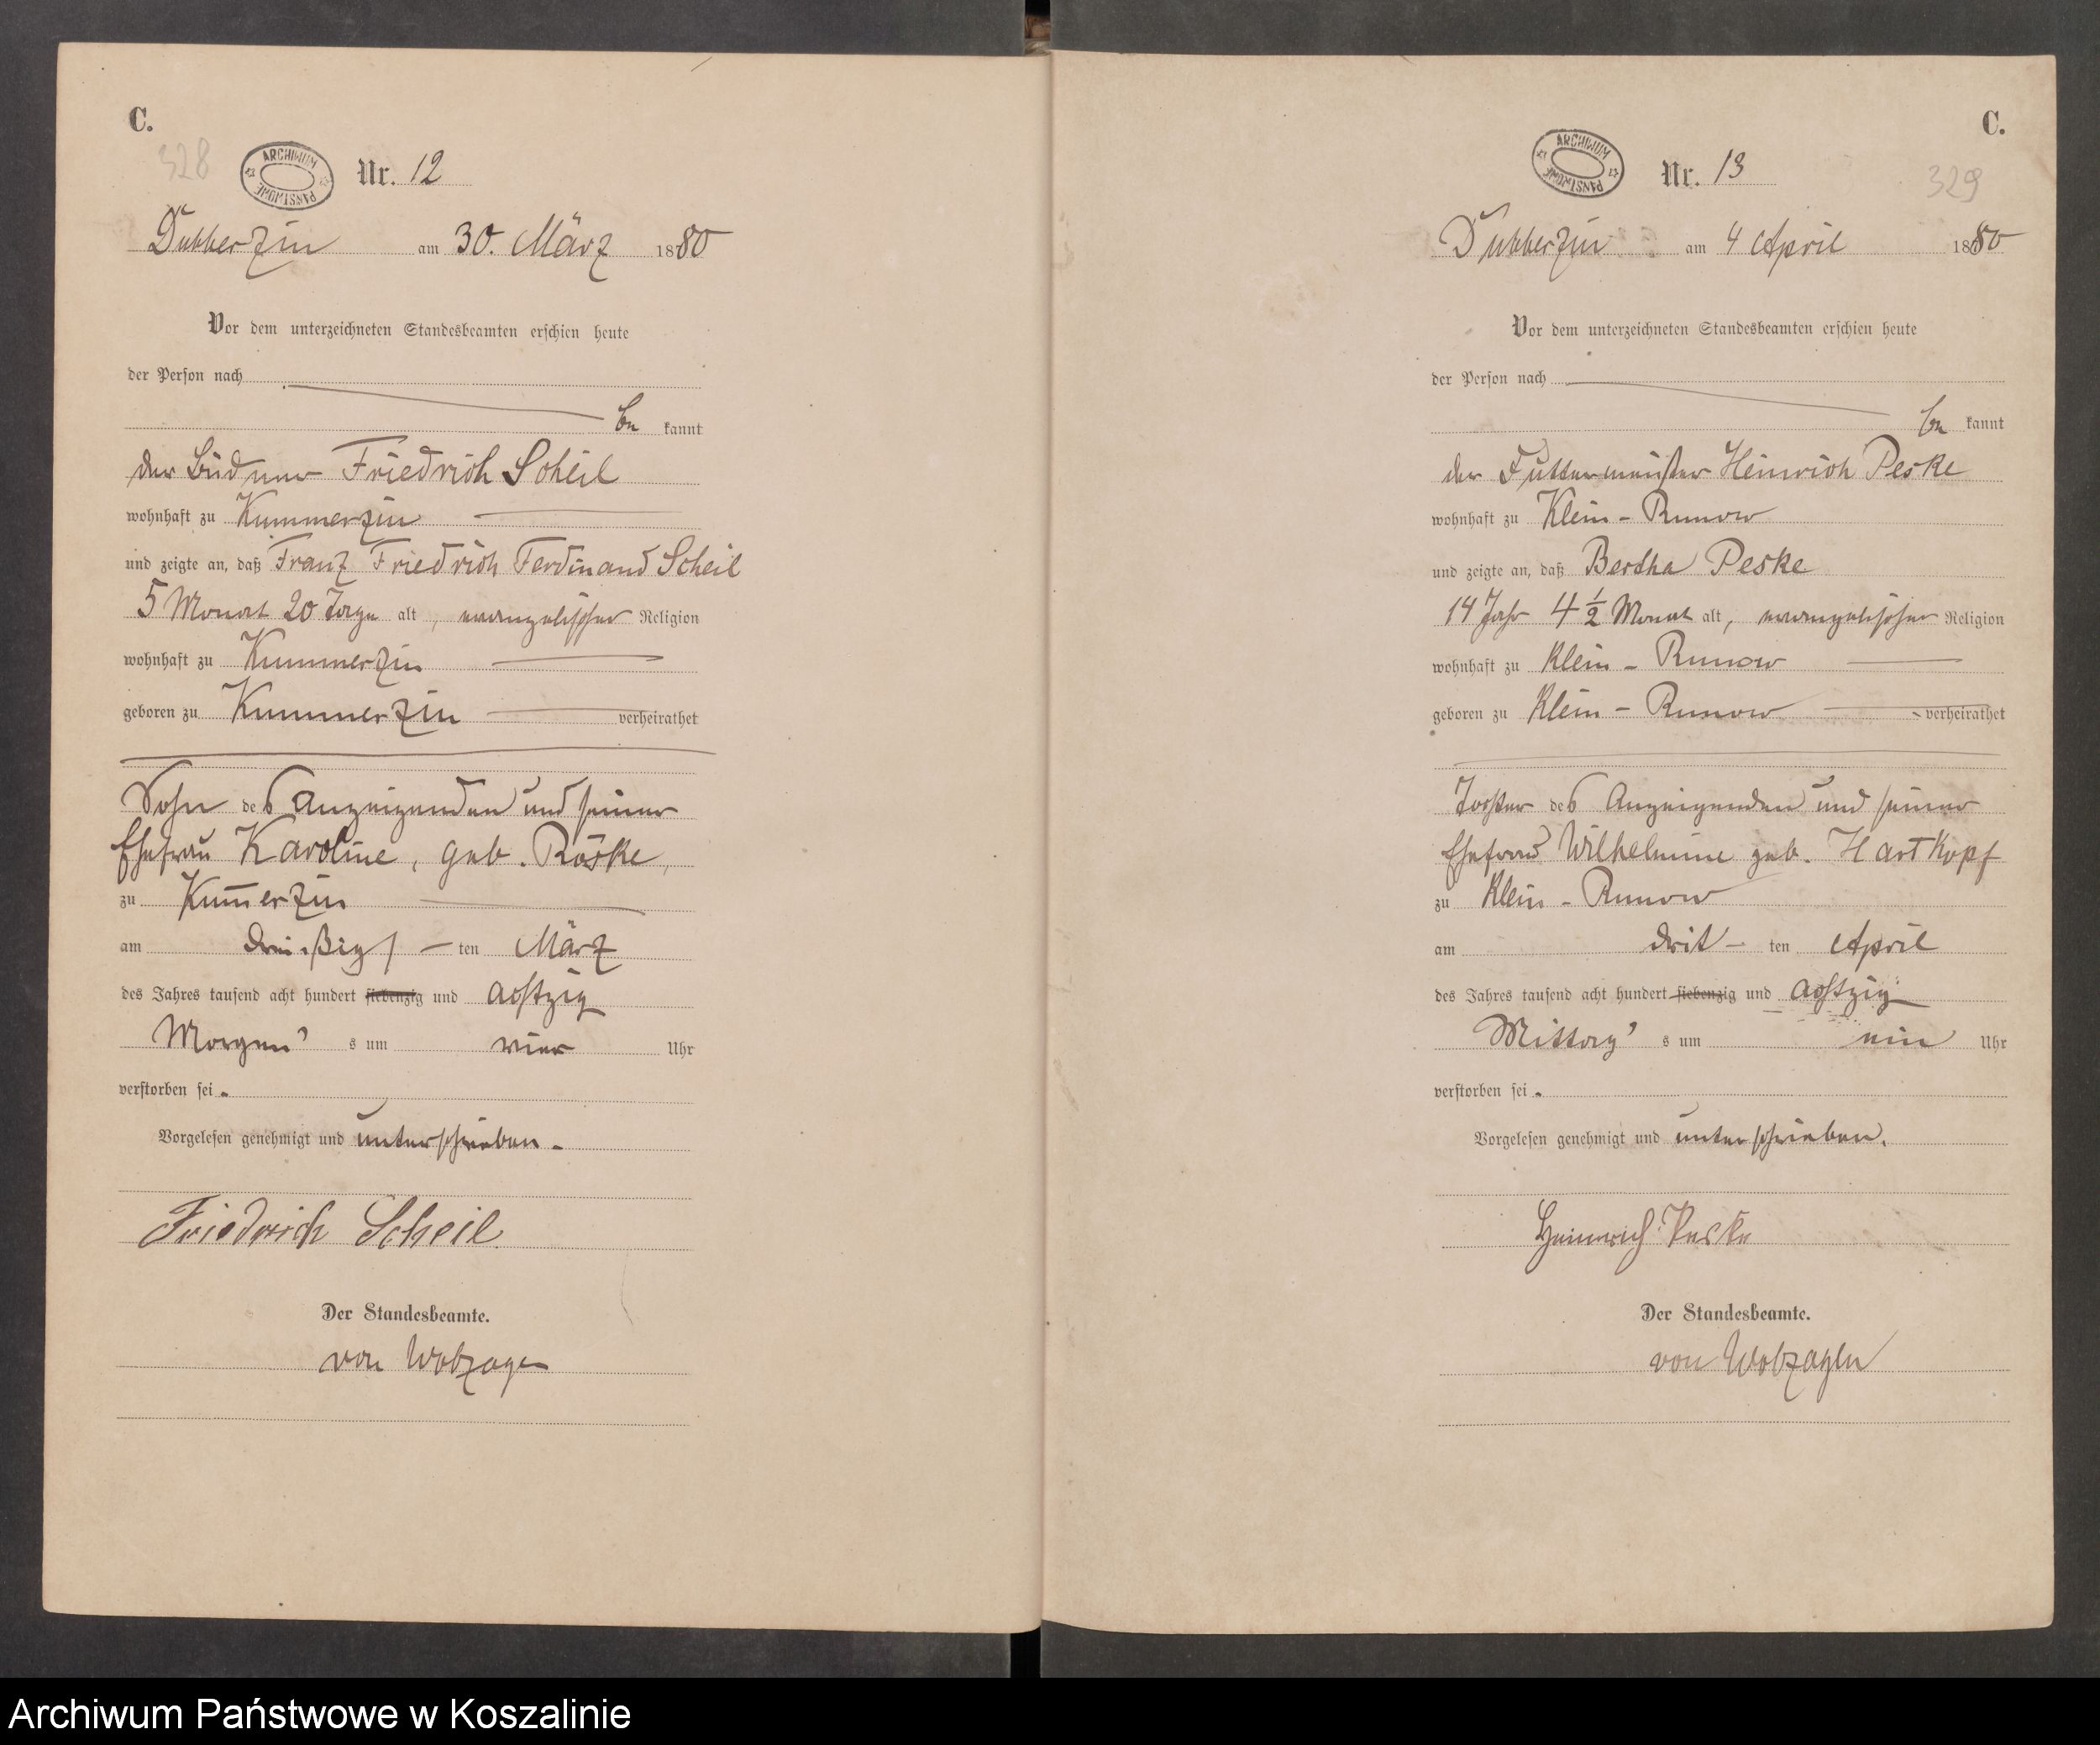 C.
328
ARCHIWUM PAŃSTWOWE
Nr. 12
Dubberzin am 30. März 1880
Vor dem unterzeichneten Standesbeamten erschien heute
der Person nach
be kannt
der Büdner Friedrich Scheil
wohnhaft zu Kummerzin
und zeigte an, daß Franz Friedrich Ferdinand Scheil
5 Monat 20 Tage alt, evangelischer Religion
wohnhaft zu Kummerzin
geboren zu Kummerzin verheirathet
Sohn des Anzeigenden und seiner
Ehefrau Karoline, geb. Röske,
zu Kum̄erzin
am dreißigs – ten März
des Jahres tausend acht hundert siebenzig und achtzig
Morgen's um vier Uhr
verstorben sei.
Vorgelesen genehmigt und unterschrieben.
Friedrich Scheil
Der Standesbeamte.
von Wobzagen
C.
329
ARCHIWUM PAŃSTWOWE
Nr. 13
Dubberzin am 4 April 1880
Vor dem unterzeichneten Standesbeamten erschien heute
der Person nach
be kannt
der Futtermeister Heinrich Peske
wohnhaft zu Klein-Runow
und zeigte an, daß Bertha Peske
14 Jahr 4 ½ Monat alt, evangelischer Religion
wohnhaft zu Klein-Runow
geboren zu Klein-Runow verheirathet
Tochter des Anzeigenden und seiner
Ehefrau Wilhelmine geb. Hartkopf
zu Klein-Runow
am drit – ten April
des Jahres tausend acht hundert siebenzig und achtzig
Mittag's um ein Uhr
verstorben sei.
Vorgelesen genehmigt und unterschrieben.
Heinrich Peske
Der Standesbeamte.
von Wobzagen
Archiwum Państwowe w Koszalinie